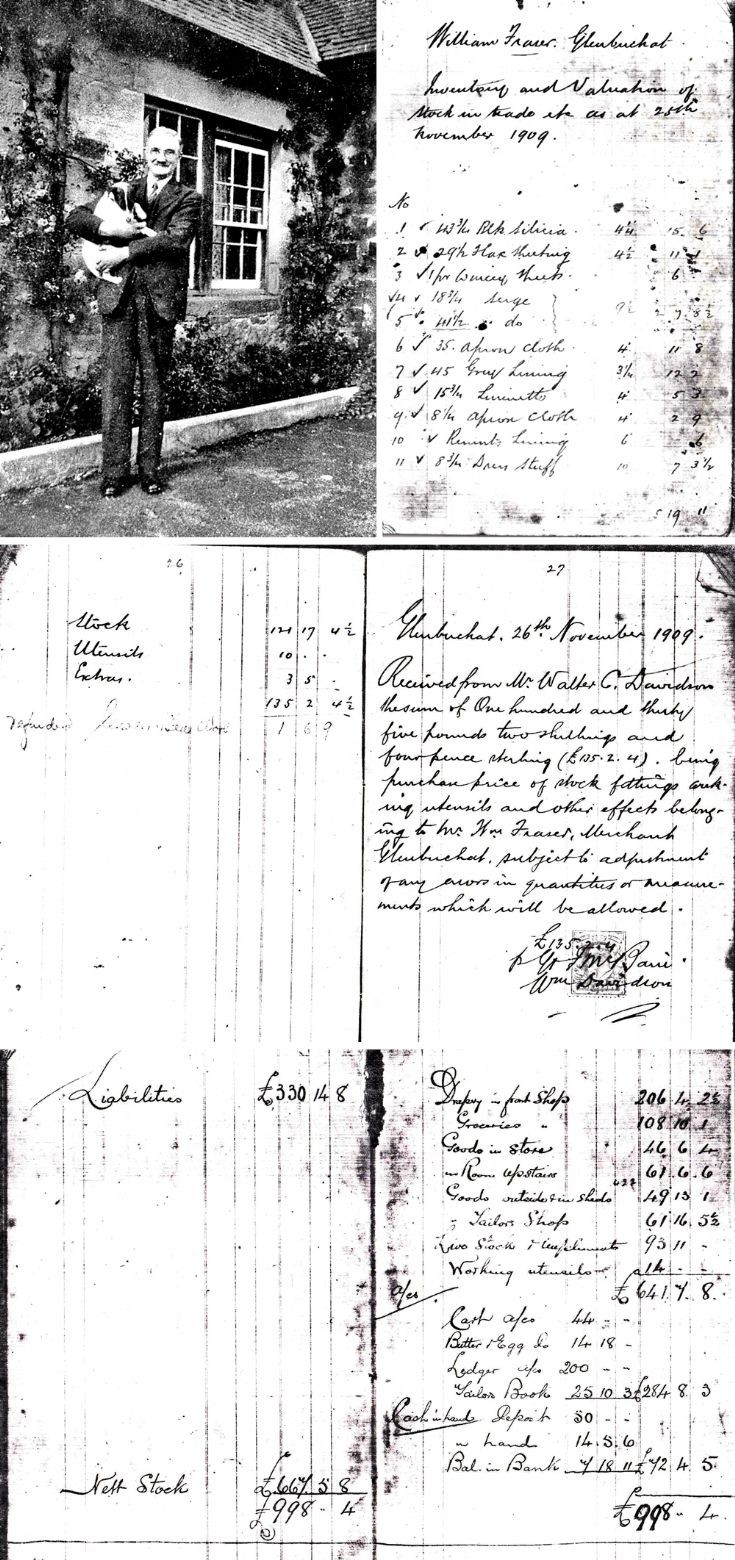 William Fraser. Glenbuchat.
Inventory and Valuation of
stock in trade etc as at 25th
November 1909.
No
1 ✓ 43¾ Blk Silicia. 4½ 15 6
2 29½ Flax Sheeting 4½ 11 1
3 ✓ 1 pr Wincey Sheets. 6
4 ✓ 18¾ Serge
5 41½ " do 9½ 2 7 8½
6 ✓ 35. Apron Cloth. 4 11 8
7 ✓ 45 Grey Lining 3¼ 12 2
8 ✓ 15¾ 4 5 3
9 ✓ 8¼ Apron Cloth 4 2 9
10 ✓ Remnts Lining 6 6
11 ✓ 8¾ Dress Stuff 10 7 3½
5 19 11
26
Stock 121 17 4½
Utensils 10 . .
Extras. 3 5 .
135 2 4½
refunded 1 6 9
27
Glenbuchat. 26th November 1909.
Received from Mr Walter C. Davidson
the sum of One hundred and thirty
five pounds two shillings and
four pence sterling (£135.2.4). being
purchase price of stock fittings work-
ing utensils and other effects belong-
ing to Mr Wm Fraser, Merchant
Glenbuchat. subject to adjustment
of any errors in quantities or measure-
ments which will be allowed.
£135.2.4
Wm Davidson
Liabilities £330 14 8
Nett Stock £667 5 8
£998 - 4
Drapery in front Shop 206 4 2½
Groceries " 108 10 1
Goods in Store 46 6 4
" Room upstairs 61.6.6
Goods outside & in sheds 49 13 1
" Tailors Shop 61.16.5½
Live Stock & Implements 93 11 -
Working utensils 14 - -
£641.7.8.
a/cs
Cash a/cs 44 - -
Butter & Egg Do 14 18 -
Ledger a/cs 200 - -
Tailors Book 25 10 3 £284 8 3
Cash in hands Deposit 50 - -
" hand 14.5.6
Bal. in Bank 7 18 11 £72 4 5.
£998 - 4.